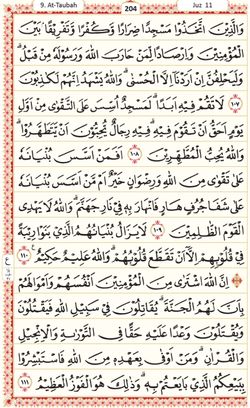 9. At-Taubah 204 Juz 11
وَالَّذِيْنَ اتَّخَذُوْا مَسْجِدًا ضِرَارًا وَّكُفْرًا وَّتَفْرِيْقًا بَيْنَ
الْمُؤْمِنِيْنَ وَاِرْصَادًا لِّمَنْ حَارَبَ اللّٰهَ وَرَسُوْلَهٗ مِنْ قَبْلُ ۗ
وَلَيَحْلِفُنَّ اِنْ اَرَدْنَآ اِلَّا الْحُسْنٰى ۗ وَاللّٰهُ يَشْهَدُ اِنَّهُمْ لَكٰذِبُوْنَ
١٠٧ لَا تَقُمْ فِيْهِ اَبَدًا ۗ لَمَسْجِدٌ اُسِّسَ عَلَى التَّقْوٰى مِنْ اَوَّلِ
يَوْمٍ اَحَقُّ اَنْ تَقُوْمَ فِيْهِ ۗ فِيْهِ رِجَالٌ يُّحِبُّوْنَ اَنْ يَّتَطَهَّرُوْا ۗ
وَاللّٰهُ يُحِبُّ الْمُطَّهِّرِيْنَ ١٠٨ اَفَمَنْ اَسَّسَ بُنْيَانَهٗ
عَلٰى تَقْوٰى مِنَ اللّٰهِ وَرِضْوَانٍ خَيْرٌ اَمْ مَّنْ اَسَّسَ بُنْيَانَهٗ
عَلٰى شَفَا جُرُفٍ هَارٍ فَانْهَارَ بِهٖ فِيْ نَارِ جَهَنَّمَ ۗ وَاللّٰهُ لَا يَهْدِى
الْقَوْمَ الظّٰلِمِيْنَ ١٠٩ لَا يَزَالُ بُنْيَانُهُمُ الَّذِيْ بَنَوْا رِيْبَةً
فِيْ قُلُوْبِهِمْ اِلَّآ اَنْ تَقَطَّعَ قُلُوْبُهُمْ ۗ وَاللّٰهُ عَلِيْمٌ حَكِيْمٌ ١١٠
اِنَّ اللّٰهَ اشْتَرٰى مِنَ الْمُؤْمِنِيْنَ اَنْفُسَهُمْ وَاَمْوَالَهُمْ
بِاَنَّ لَهُمُ الْجَنَّةَ ۗ يُقَاتِلُوْنَ فِيْ سَبِيْلِ اللّٰهِ فَيَقْتُلُوْنَ
وَيُقْتَلُوْنَ وَعْدًا عَلَيْهِ حَقًّا فِى التَّوْرٰىةِ وَالْاِنْجِيْلِ
وَالْقُرْاٰنِ ۗ وَمَنْ اَوْفٰى بِعَهْدِهٖ مِنَ اللّٰهِ فَاسْتَبْشِرُوْا
بِبَيْعِكُمُ الَّذِيْ بَايَعْتُمْ بِهٖ ۗ وَذٰلِكَ هُوَ الْفَوْزُ الْعَظِيْمُ ١١١